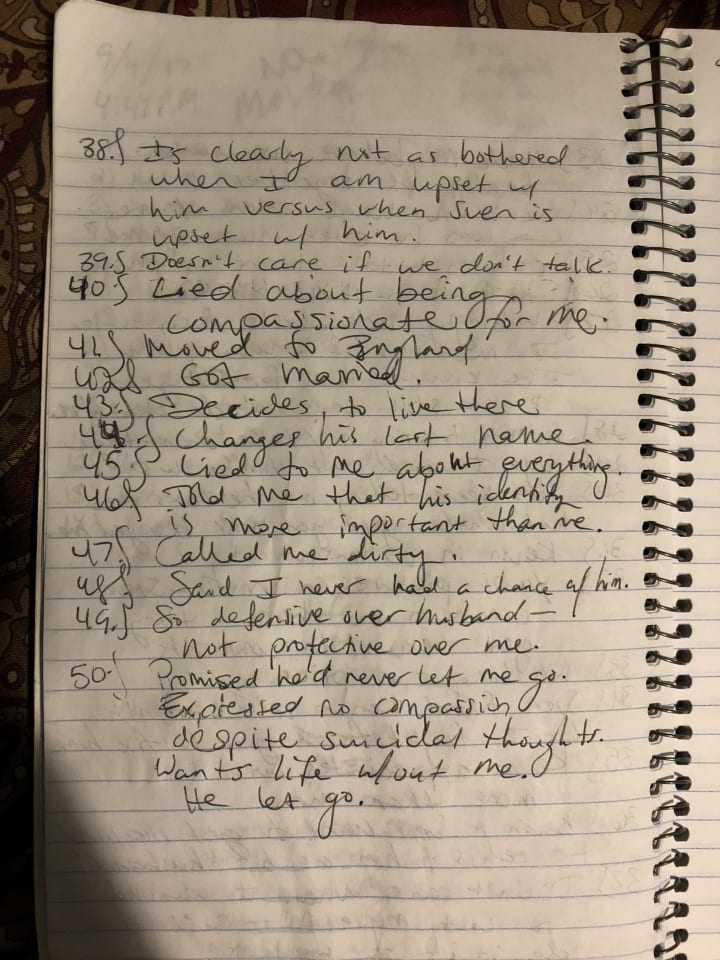 38.) Is clearly not as bothered
when I am upset w/
him versus when Sven is
upset w/ him.
39.) Doesn't care if we don't talk.
40.) Lied about being
compassionate for me.
41.) Moved to England
42.) Got married.
43.) Decides to live there
44.) Changes his last name.
45.) Lied to me about everything.
46.) Told me that his identity
is more important than me.
47.) Called me dirty.
48.) Said I never had a chance w/ him.
49.) So defensive over husband—
not protective over me.
50.) Promised he'd never let me go.
Expressed no compassion
despite suicidal thoughts.
Wants life w/out me.
He let go.